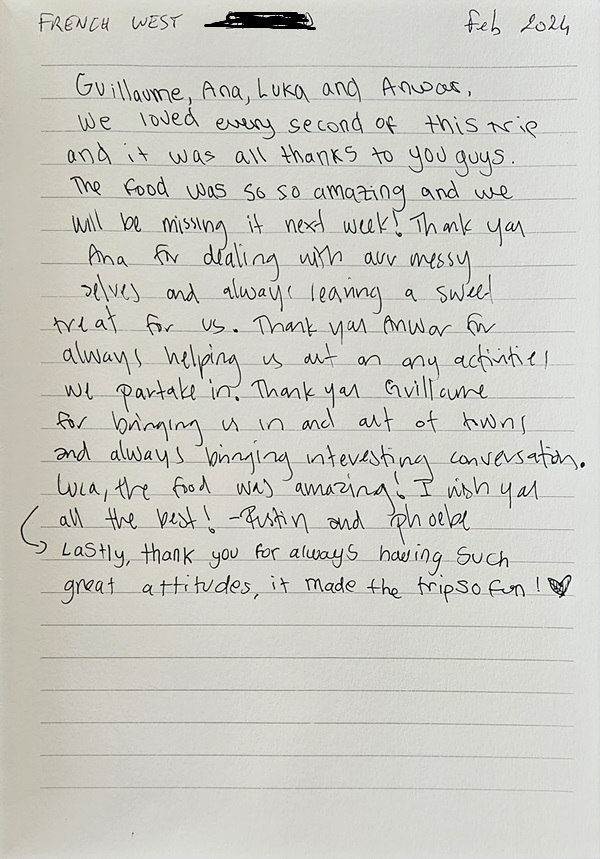 FRENCH WEST Feb 2024
Guillaume, Ana, Luka and Anwar,
We loved every second of this trip
and it was all thanks to you guys.
The food was so so amazing and we
will be missing it next week! Thank you
Ana for dealing with our messy
selves and always leaving a sweet
treat for us. Thank you Anwar for
always helping us out on any activities
we partake in. Thank you Guillaume
for bringing us in and out of towns
and always bringing interesting conversation.
Luca, the food was amazing! I wish you
all the best! - Justin and Phoebe
Lastly, thank you for always having such
great attitudes, it made the trip so fun!